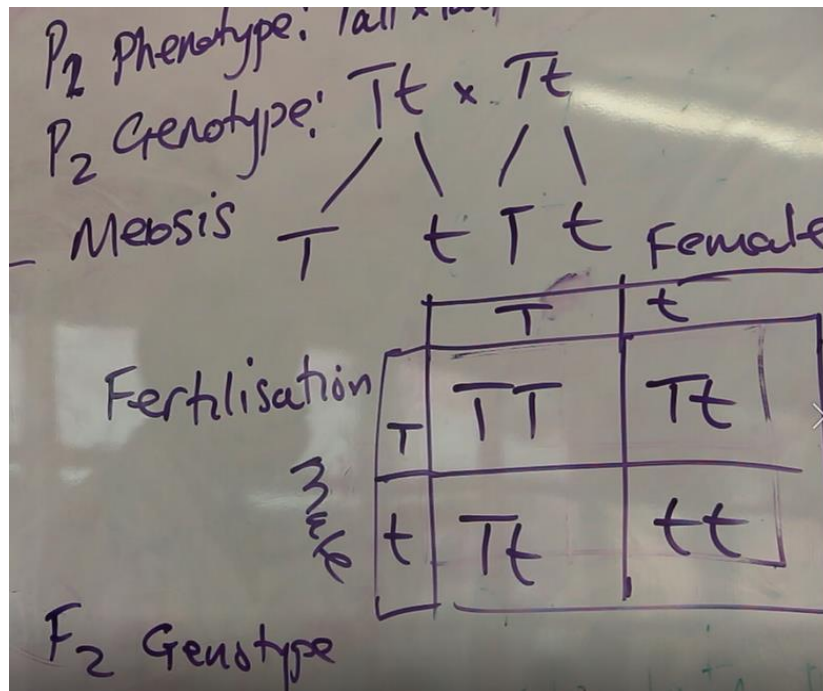 P2 Phenotype: Tall x
P2 Genotype: Tt x Tt
Meosis T t T t
Female
T t
Fertilisation
Male
T TT Tt
t Tt tt
F2 Genotype